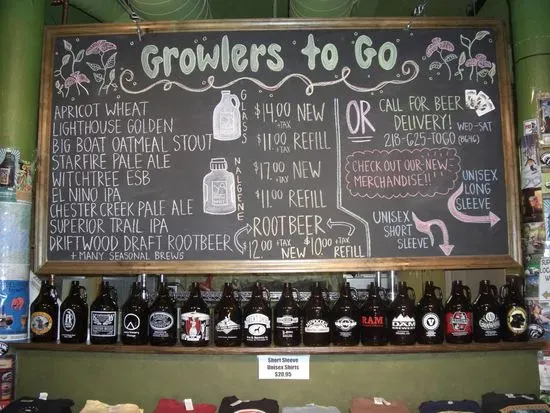 Growlers to Go
APRICOT WHEAT
LIGHTHOUSE GOLDEN
BIG BOAT OATMEAL STOUT
STARFIRE PALE ALE
WITCHTREE ESB
EL NINO IPA
CHESTER CREEK PALE ALE
SUPERIOR TRAIL IPA
DRIFTWOOD DRAFT ROOTBEER
+ MANY SEASONAL BREWS
GLASS
$14.00 NEW
+TAX
$11.00 REFILL
+TAX
NALGENE
$17.00 NEW
+TAX
$11.00 REFILL
ROOTBEER
$12.00 +TAX NEW
$10.00 +TAX REFILL
OR
CALL FOR BEER
DELIVERY! WED-SAT
218-625-TOGO (8646)
CHECK OUT OUR NEW
MERCHANDISE!!
UNISEX
LONG
SLEEVE
UNISEX
SHORT
SLEEVE
RAM
DAM
Short Sleeve
Unisex Shirts
$20.95